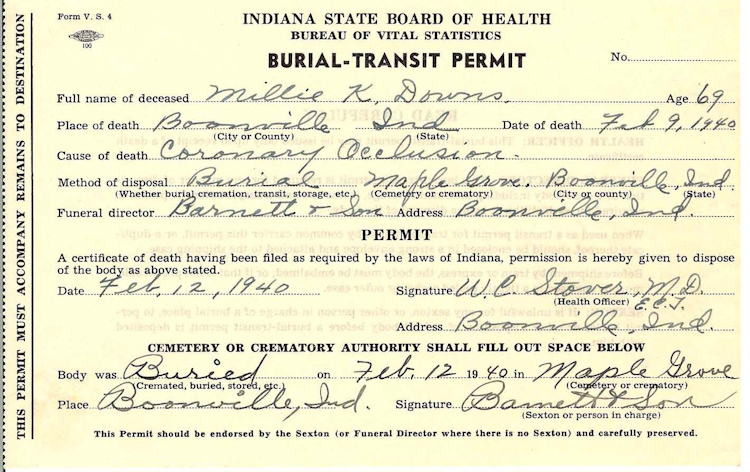 Form V. S. 4
INDIANA STATE BOARD OF HEALTH
BUREAU OF VITAL STATISTICS
100
BURIAL-TRANSIT PERMIT
No.
THIS PERMIT MUST ACCOMPANY REMAINS TO DESTINATION
Full name of deceased Millie K. Downs. Age 69
Place of death Boonville Ind Date of death Feb 9, 1940
(City or County) (State)
Cause of death Coronary Occlusion.
Method of disposal Burial Maple Grove. Boonville, Ind.
(Whether burial cremation, transit, storage, etc.) (Cemetery or crematory) (City or county) (State)
Funeral director Barnett & Son Address Boonville, Ind.
PERMIT
A certificate of death having been filed as required by the laws of Indiana, permission is hereby given to dispose
of the body as above stated.
Date Feb, 12, 1940 Signature W. C. Stover, M. D.
(Health Officer) E. C. J.
Address Boonville, Ind.
CEMETERY OR CREMATORY AUTHORITY SHALL FILL OUT SPACE BELOW
Body was Buried on Feb. 12 1940 in Maple Grove
(Cremated, buried, stored, etc.) (Cemetery or crematory)
Place Boonville, Ind. Signature Barnett & Son
(Sexton or person in charge)
This Permit should be endorsed by the Sexton (or Funeral Director where there is no Sexton) and carefully preserved.